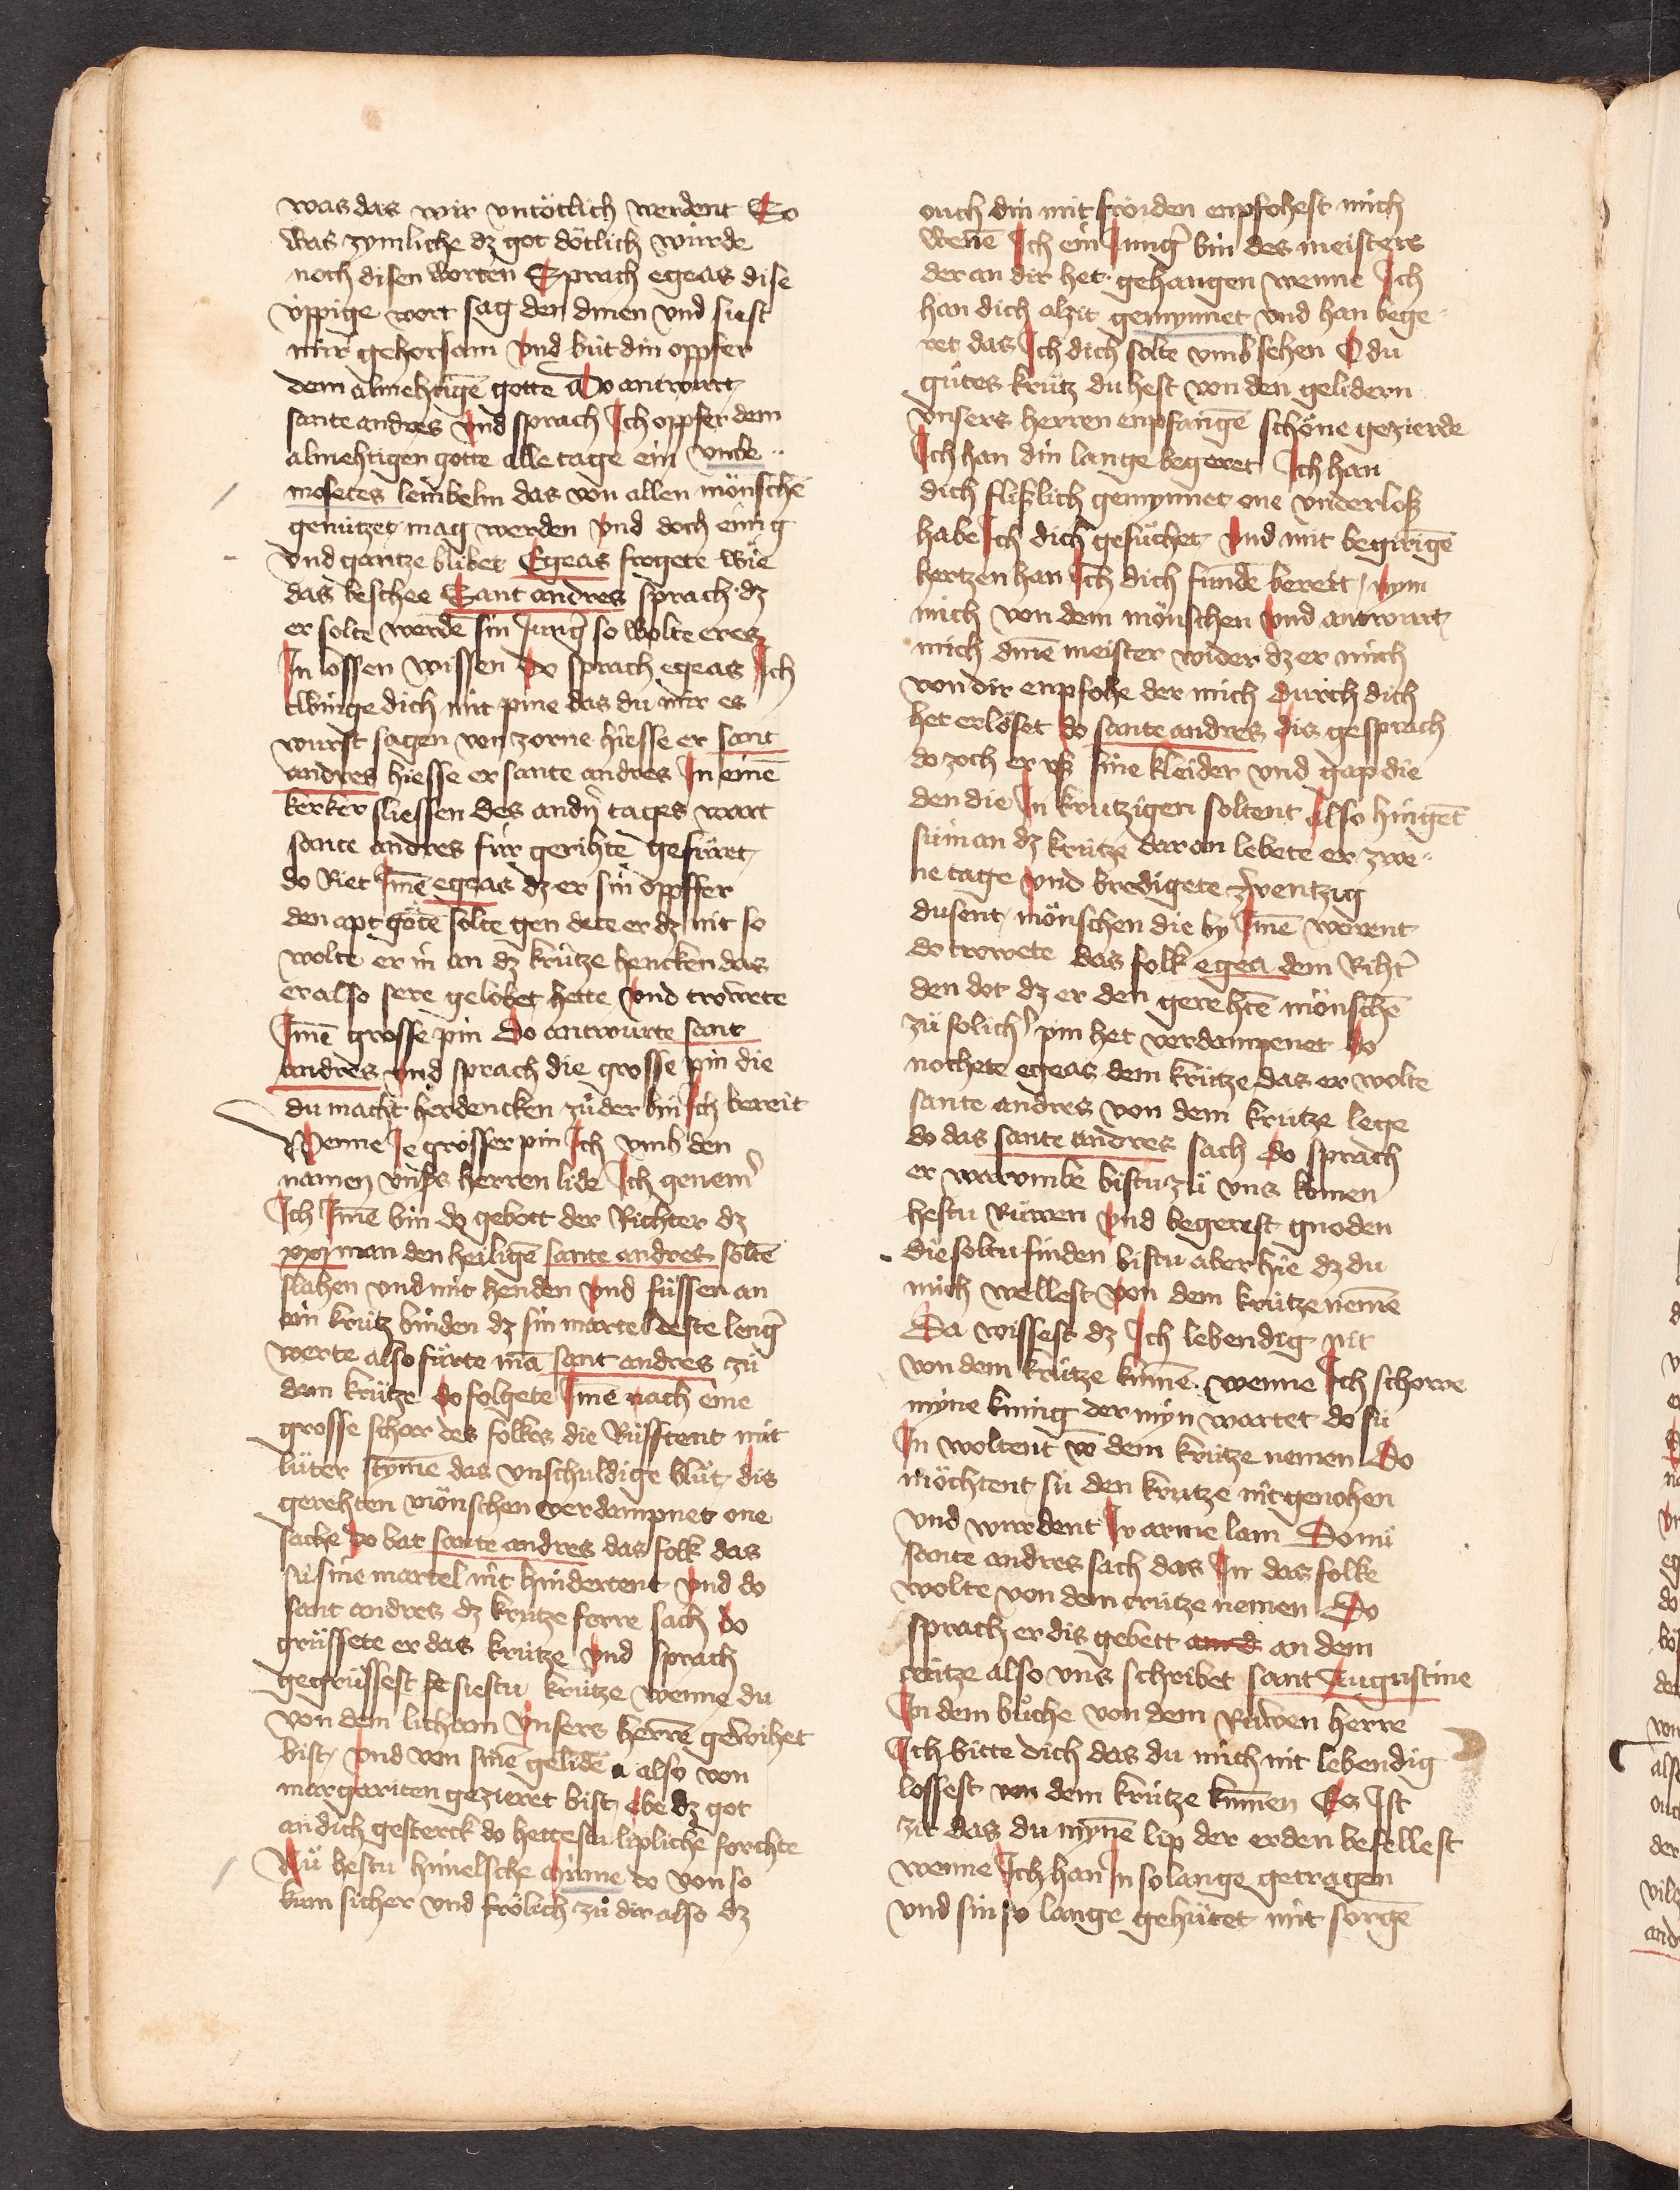 was das wir vntötlich werdent So
was zymliche dz got dötlich würde
noch disen worten Sprach egeas dise
vppige wort sag den dinen vnd siest
mir gehorsam vnd büt din oppfer
dem almehtigē gotte Do antwurt
sante andres vnd sprach Ich oppfer dem
almehtigen gotte alle tage ein vnbe
mosetes lembelin das von allen mönschē
genützet mag werden vnd doch einig
vnd gantze blibet Egeas frogete wie
das beschee Sant andres sprach dz
er solte werdē sin Jung̉ so wolte er es
In lossen wissen do sprach egeas Ich
twinge dich mit pine das du mir es
wurst sagen von zorne hiesse er sant
andres hiesse er sante andres In einē
kerker sliessen des andn̉ tages wart
sante andres für gerihte gefürt
do Riet Imē egeas dz er sin oppffer
den apt göte solte gen dete er dz nit so
wolte er in an dz krütze hencken das
er also sere gelobet hette vnd trowete
Imē grosse pin do antwurte sant
andres vnd sprach die grosse pin die
du macht herdencken zu der bin Ich bereit
Wenne Je grösser pin Ich vmb den
namen vnsers herren lide Ich genem̉
Ich Imē bin do gebott der Richter dz
xxj man den heiligē sante andres soltē
slahen vnd mit henden vnd füssen an
ein krütz binden dz sin martel deste leng̉
werte also fürte mā sant andres zü
dem krütze do folgete Imē nach eine
grosse schar des folkes die Rüfftent mit
lüter stymē das vnschuldige blüt dis
gerehten mönschen verdampnet one
sache do bat sante andres das folk das
sü sine martel nit hindertent vnd do
sant andres dz krütze ferre sach do
grüssete er das krütze vnd sprach
gegrüssest siestu krütze wenne du
von dem licham vnsers herrē gewihet
bist vnd von sinē gelidē also von
margariten gezieret bist ebe dz got
an dich gesterck do hettestu liplichē forchte
Nü hestu himelsche minne do von so
kum sicher vnd frölich zu dir also dz
ouch din mit fröiden enpfohest mich
wenē Ich ein Jung̉ bin des meisters
der an dir het gehangen wenne Ich
han dich alzit gemynnet vnd han bege
ret das Ich dich solte vmb sehen O du
gütes krütz du hest von den gelidern
vnsers herren enpfangē schöne gezierde
Ich han din lange begeret Ich han
dich flißlich gemynnet one vnderloß
habe Ich dich gesüchet vnd mit begirigē
hertzen han Ich dich fundē bereit nym
mich von dem mönschen vnd antwurt
mich dinē meister wider dz er mich
von dir enpfohe der mich durch dich
het erlöset do sante andres dis gesprach
do zoch er vß sine kleider vnd gap die
den die In krutzigen soltent also hingēt
sü in an dz krütze dar an lebete er zwe
ne tage vnd bredigete zwentzig
dusent mönschen die by Imē worent
do trowete das folk egea dem Riht̉
den dot dz er den gerehtē mönschē
zü solich̉ pin het verdampenet do
nochete egeas dem krütze das er wolte
sante andres von dem krütze lege
do das sante andres sach do sprach
er warumbe bistu zü vns komen
hestu Rüwen vnd begerest gnoden
die soltu finden bistu aber hie dz du
mich wellest von dem krütze nemē
Da wissest dz Ich lebendig nit
von dem krütze kumē wenne Ich schowe
myne kunig der myn wartet do sü
In woltent vō dem krütze nemen Do
möchtent sü den krutze nit genohen
vnd wurdent Ir arme lam Do nü
sante andres sach das In das folke
wolte von dem crütze nemen Do
sprach er dis gebett an dem
crütze also vns schribet sant Augustine
In dem büche von dem Rüwen herre
Ich bitte dich das du mich nit lebendig
lossest von dem krütze kumen Es Ist
zit das du mynē lip der erden befellest
wenne Ich han In so lange getragen
vnd sin so lange gehütet mit sorgē